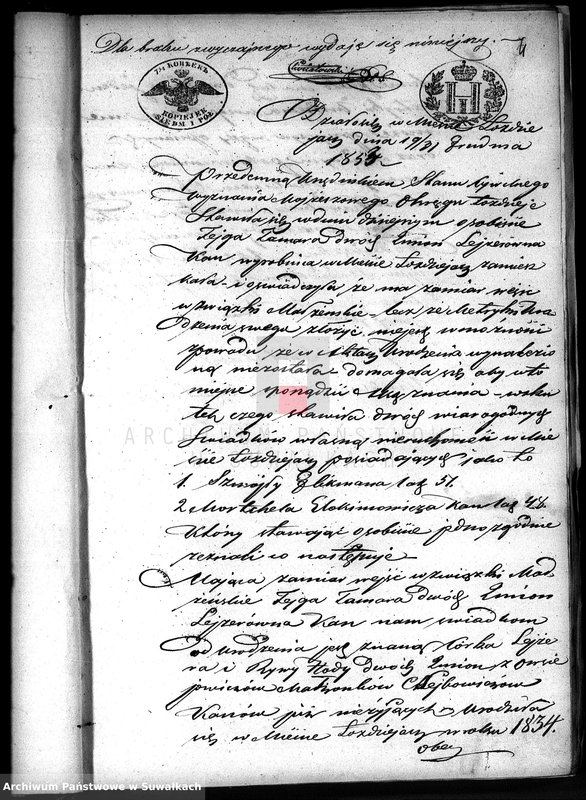 Dla braku zwyczajnego wydaję się niniejszy.
Kwiatowski
7½ KOPĚEKЪ
KOPIEJEK
SIEDM I PÓŁ
Działo się w Mieście Łozdzie
jach dnia 19/31 Grudnia
1854
Przedemną Urzędnikiem Stanu Cywilnego
Wyznania Mojżeszowego Okręgu Łozdzieje
Stawiła się w dniu dzisiejszym osobiście
Fejga Tamara dwóch Imion Lejzerowna
Kan wyrobnica w Mieście Łozdziejach zamiesz
kała i oświadczyła że ma zamiar wejść
w związki Małżeńskie lecz że Metryki Uro
dzenia swego złożyć niejest w możności
z powodu że w Aktach Urodzenia wynalezio
ną niezostała domagała się aby w to
miejsce sporządzić Akt znania w sku
tek czego stawiła dwóch wiarogodnych
Świadków własną nieruchomość w Mie
ście Łozdziejach posiadających jako to
1. Szmojły Glikmana lat 51.
2 Mortchela Elokimowicza Kan lat 46.
Którzy stawając osobiście jednozgodnie
zeznali co następuje
Mająca zamiar wejść w związki Mał
żeńskie Fejga Tamara dwóch Imion
Lejzerowna Kan nam świadkom
od Urodzenia jest znaną córka Lejze
ra i Rywy Hody dwóch Imion z
Małżonków Lejbowiczów
Kanów już nieżyjących Urodziła
się w Mieście Łozdziejach w roku 1834.
obec
ARCHIWUM PAŃSTWOWE
W SUWAŁKACH
Archiwum Państwowe w Suwałkach